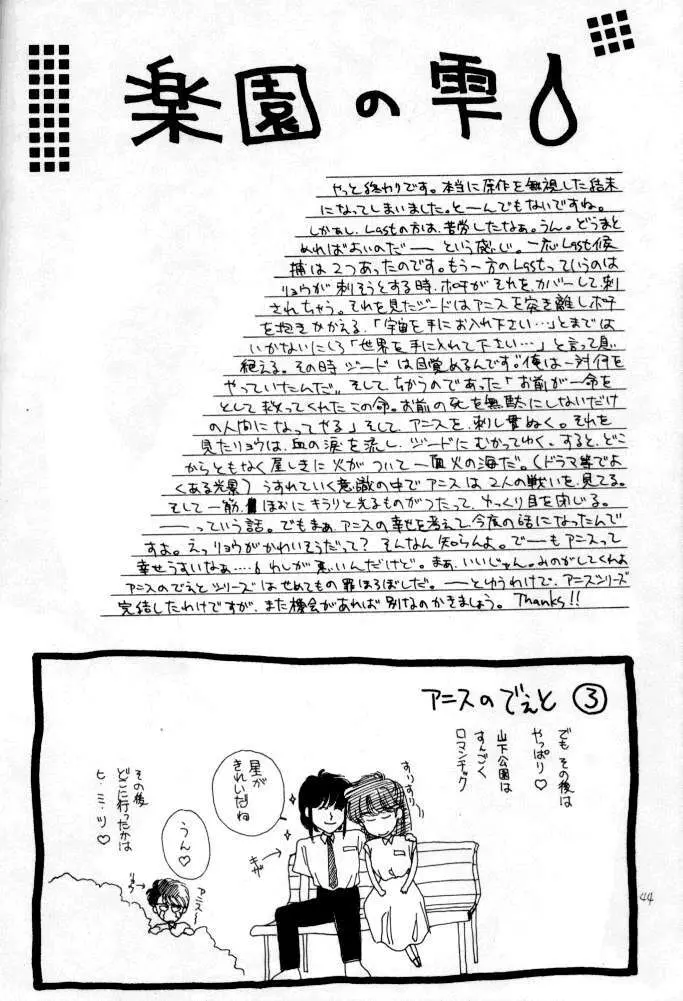 楽園の雫
やっと終わりです。本当に原作を無視した結末
になってしまいました。と一んでもないですね。
しかぁし、Lastの方は、苦労したなぁ。うん。どうまと
めればよいのだ── という感じ。一応Last候
補は2つあったのです。もう一方のLastっていうのは
リョウが刺そうとする時、ポチがそれを、カバーして、刺
されちゃう。それを見たジードはアニスを突き離しポチ
を抱きかかえる。「宇宙を手にお入れ下さい…」とまでは
いかないにしろ「世界を手に入れて下さい…」と言って息
絶える。その時ジードは目覚めるんです。"俺は一対何を
やっていたんだ〟そして、ちかうのであった「お前が一命を
として救ってくれたこの命。お前の死を無駄にしないだけ
の人間になってやる」そして、アニスを、刺し貫ぬく。それを
見たリョウは、血の涙を流し、ジードにむかってゆく。すると、どこ
からともなく屋しきに火がついて一面火の海だ。(ドラマ等でよ
くある光景)うすれていく意識の中でアニスは2人の戦いを、見てる。
そして一筋、ほおにキラリと光るものがつたって、ゆっくり目を閉じる。
──っていう話。でもまぁ、アニスの幸せを考えて今度の話になったんで
すよ。えっリョウがかわいそうだって?そんなん知らんよ。で一もアニスって
幸せうすいなぁ……わしが悪いんだけど。まぁ、いいじゃん。みのがしてくれよ
アニスのでぇとシリーズはせめてもの罪ほろぼしだ。──とゆうわけで、アニスシリーズ
完結したわけですが、また機会があれば別なのかきましょう。Thanks!!
アニスのでぇと③
でも その後は
やっぱり♡
山下公園は
すんごく
ロマンチック
すりすり
星が
きれいだね
キザ
うん♡
アニス〜
りょう
その後
どこに行ったかは
ヒ・ミ・ツ♡
44